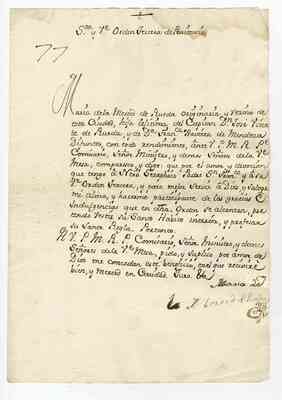 y Vᵉ Orden Tercera de Penitencia
Maria de la Merced de Rueda originaria, y vecina de
esta Ciudad, hija lexitima del Capitan Dⁿ José
de Rueda, y de Dᵃ Franᶜᵃ de Mendoza
Difuntos, con todo rendimiento, ante V. P. M. R. Pᵉ
Comisario, Señor Ministro, y demas Señores de la Vᵉ
Mesa, comparesco, y digo: que por el amor y devocion,
que tengo a Ntro Seraphico Padre Sⁿ Franᶜᵒ y à su
Vᵉ Orden Tercera, y para mejor servir à Dios, y salvar
mi alma, y hacerme participante de las gracias è
Indulgencias que en dha. Orden se alcanzan, pre
tendo vestir su Santo Habito interior, y profesar
su Santa Regla. Por tanto.
A V. P. M. R. Pᵉ Comisario, Señor Ministro, y demas
Señores de la Vᵉ Mesa, pido, y suplico por amor de
Dios me concedan este beneficio, en el que recivirè
bien, y merced en Caridad. Juro &ᵃ